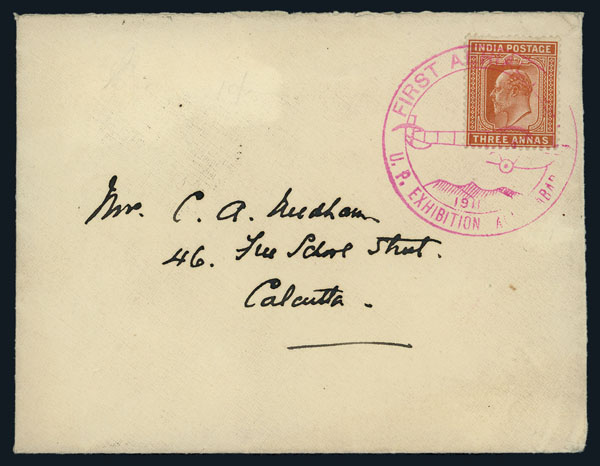 INDIA POSTAGE
THREE ANNAS
FIRST A
1911
U. P. EXHIBITION A ABAD
Mrs. C. A. Needham
46. Free School Street.
Calcutta.